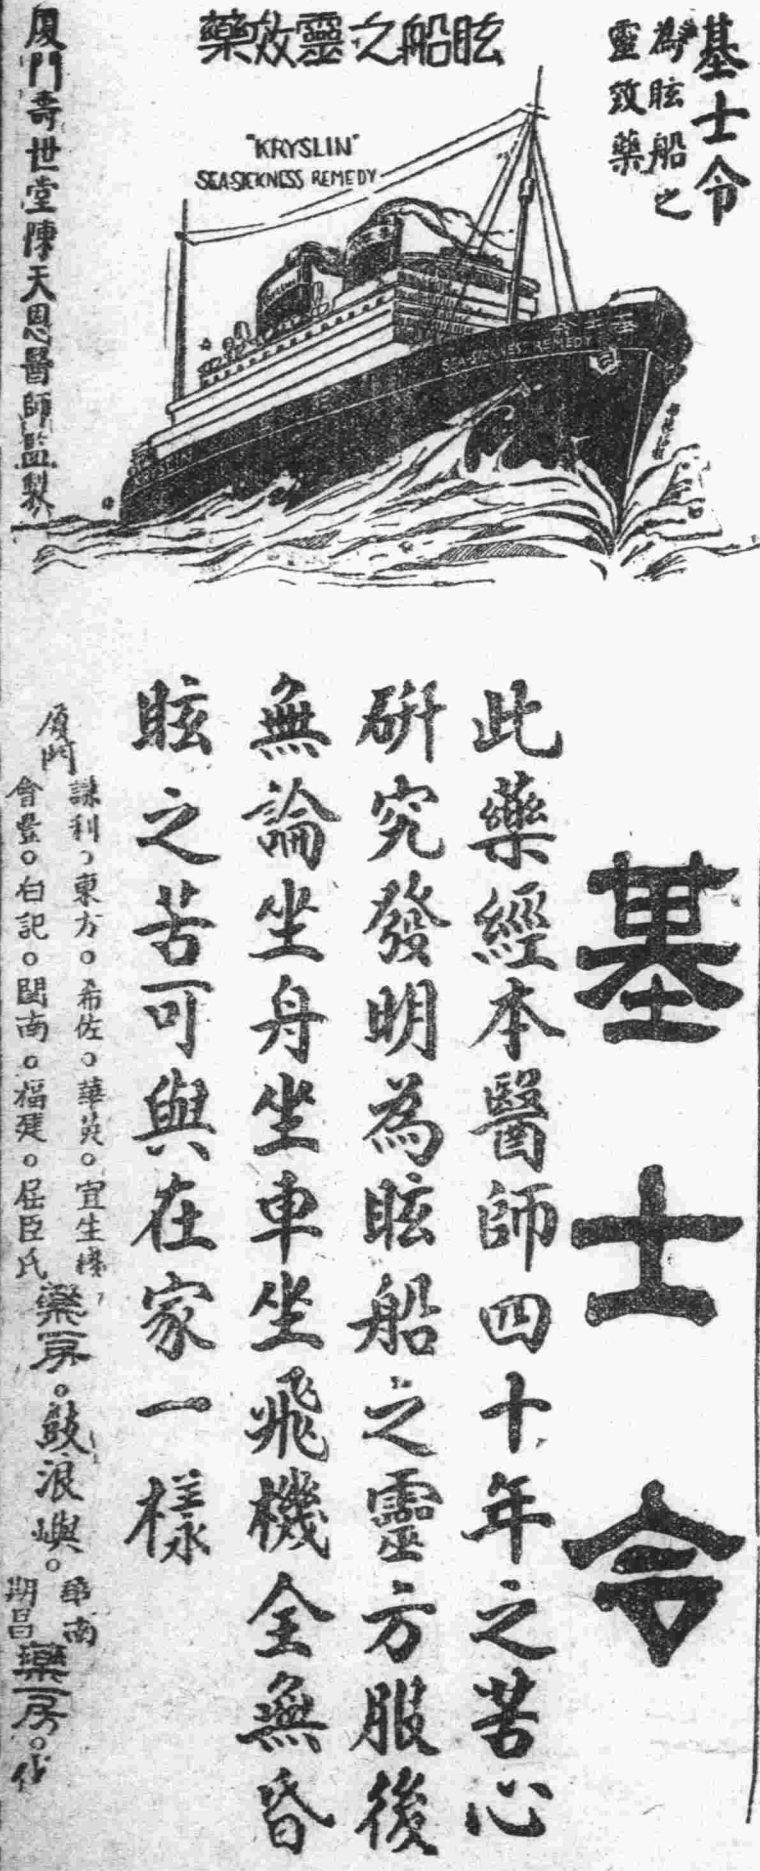 基士令
為眩船之
靈效藥
眩船之靈效藥
"KRYSLIN"
SEA-SICKNESS REMEDY
基士令
SEA-SICKNESS REMEDY
KRYSLIN
廈門壽世堂陳天恩醫師監製
基士令
此藥經本醫師四十年之苦心
研究發明為眩船之靈方服後
無論坐舟坐車坐飛機全無昏
眩之苦可與在家一樣
廈門
謙利，東方。希佐。華英。宜生
會豐。白記。閩南。福建。屈臣氏
藥房。鼓浪嶼。
華南
期昌
藥房。代